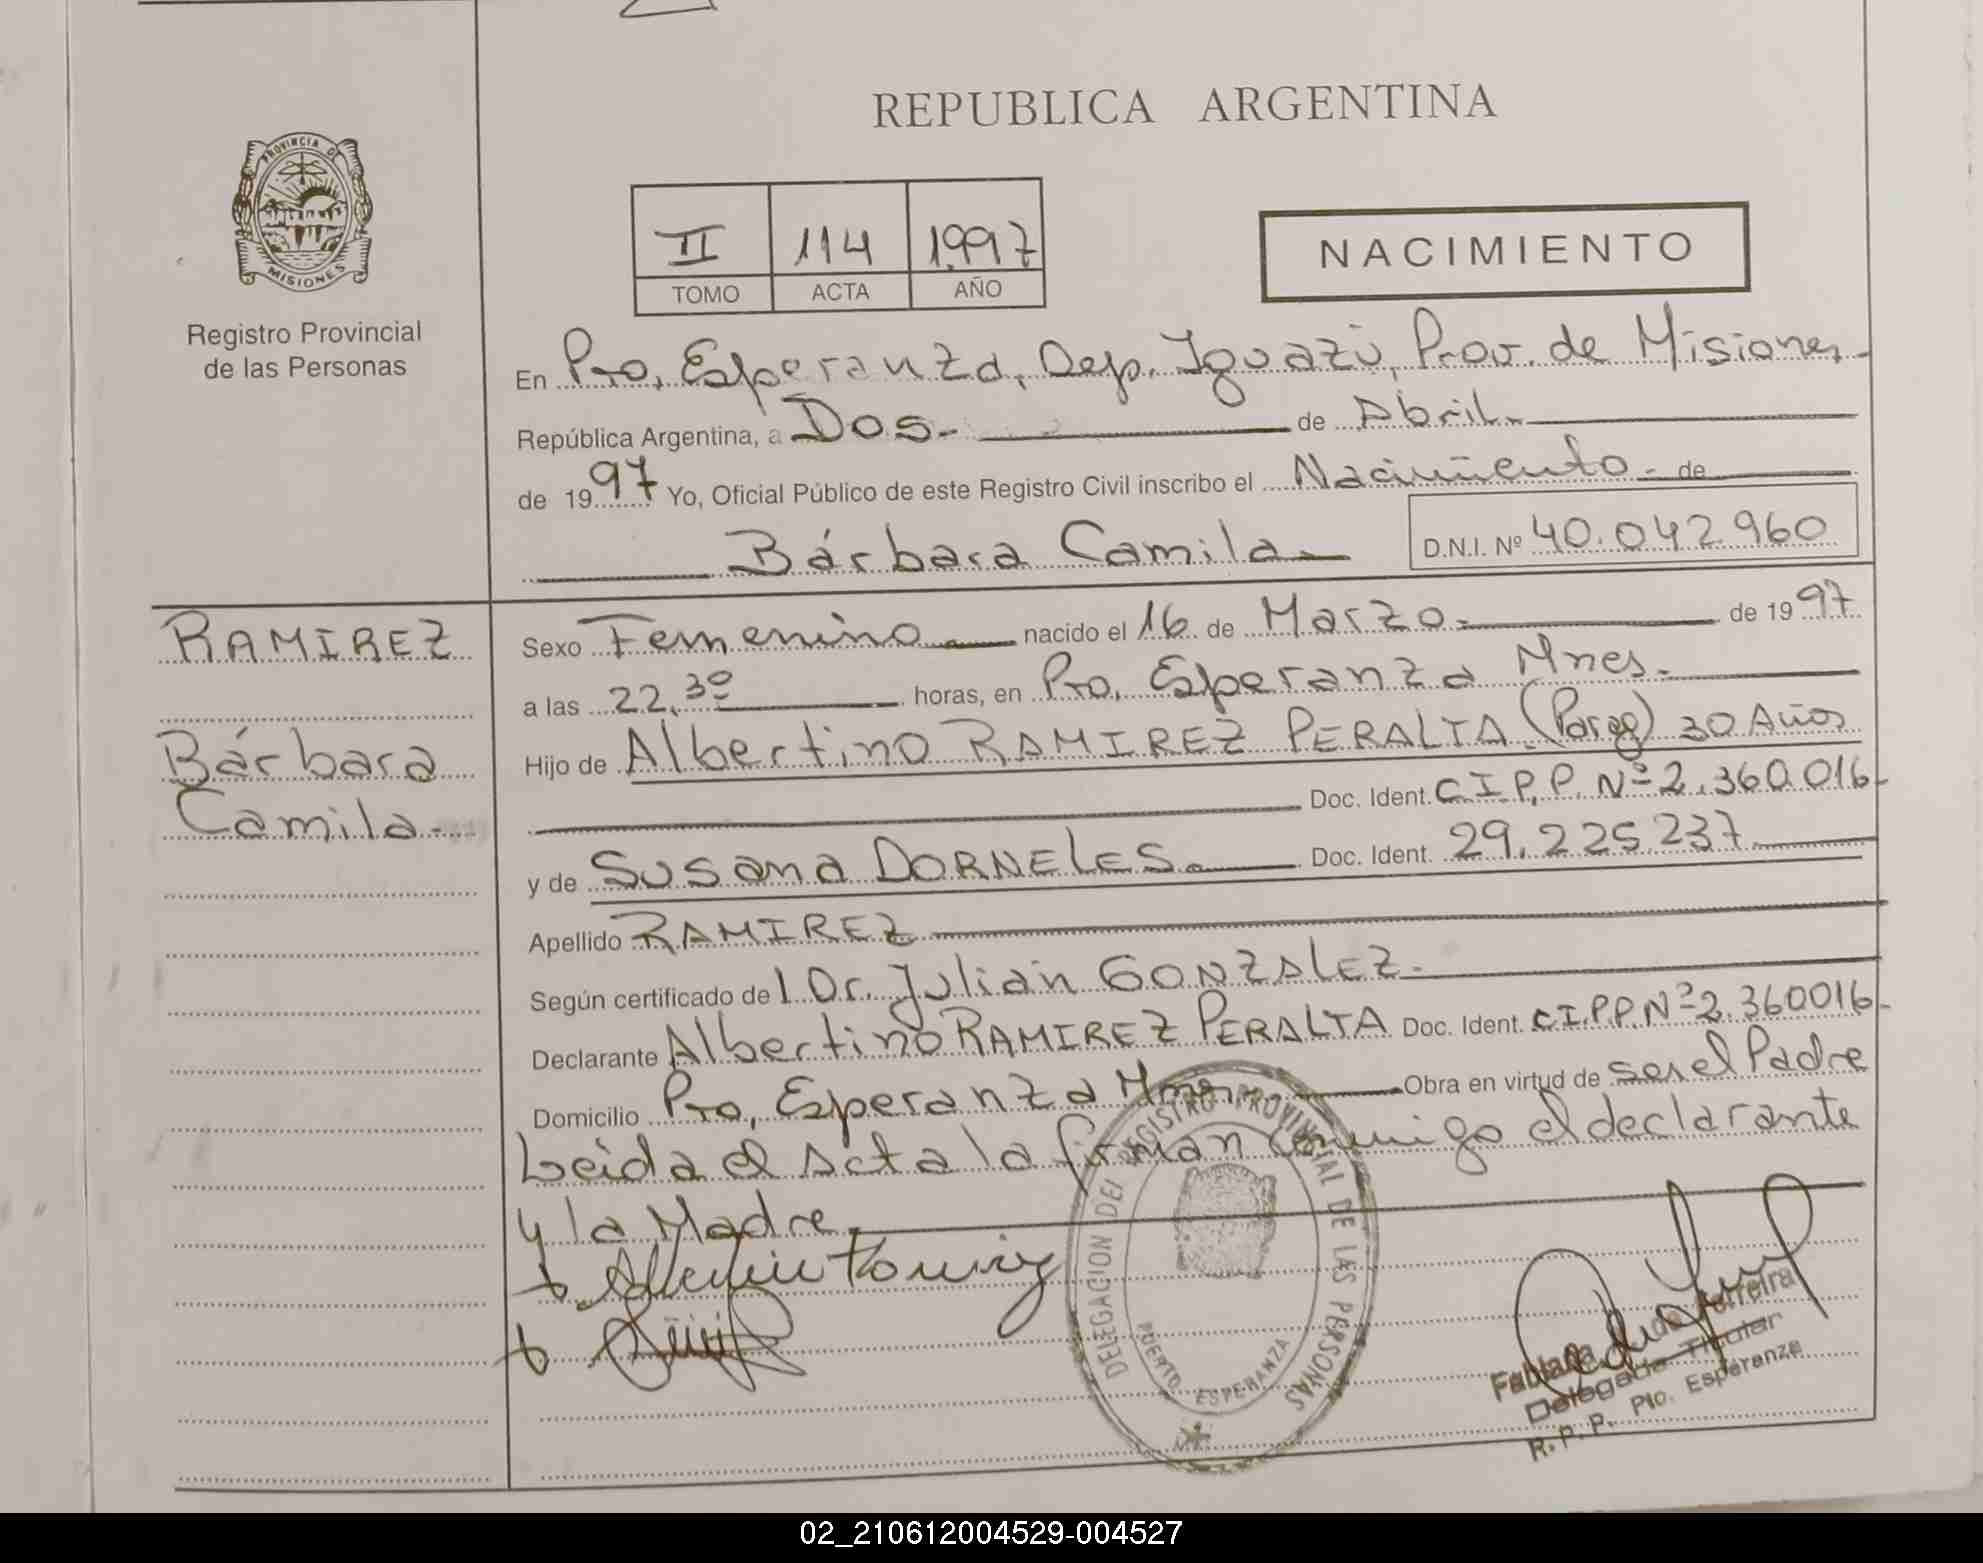 REPUBLICA ARGENTINA
PROVINCIA DE
MISIONES
Registro Provincial
de las Personas
II 114 1997
TOMO ACTA AÑO
NACIMIENTO
En Pto, Esperanza, Dep. Iguazú, Prov. de Misiones.
República Argentina, a Dos.- de Abril.-
de 1997 Yo, Oficial Público de este Registro Civil inscribo el Nacimiento.- de
Bárbara Camila D.N.I. Nº 40.042.960
RAMIREZ
Bárbara
Camila.-
Sexo Femenino nacido el 16 de Marzo.- de 1997
a las 22,30 horas, en Pto, Esperanza Mnes.-
Hijo de Albertino RAMIREZ PERALTA (Parag) 30 Años
Doc. Ident. C.I.P.P. Nº 2.360.016-
y de Susana DORNELES.- Doc. Ident. 29.225.237
Apellido RAMIREZ
Según certificado del Dr. Julián GONZALEZ.-
Declarante Albertino RAMIREZ PERALTA Doc. Ident. C.I.P.P. Nº 2.360016-
Domicilio Pto, Esperanza Mnes Obra en virtud de ser el Padre
Leida el Acta la firman conmigo el declarante
y la Madre.
DELEGACION DEL REGISTRO PROVINCIAL DE LAS PERSONAS
PUERTO ESPERANZA
Fabiana de Ferreira
Delegada Titular
R.P.P. Pto. Esperanza
02_210612004529-004527